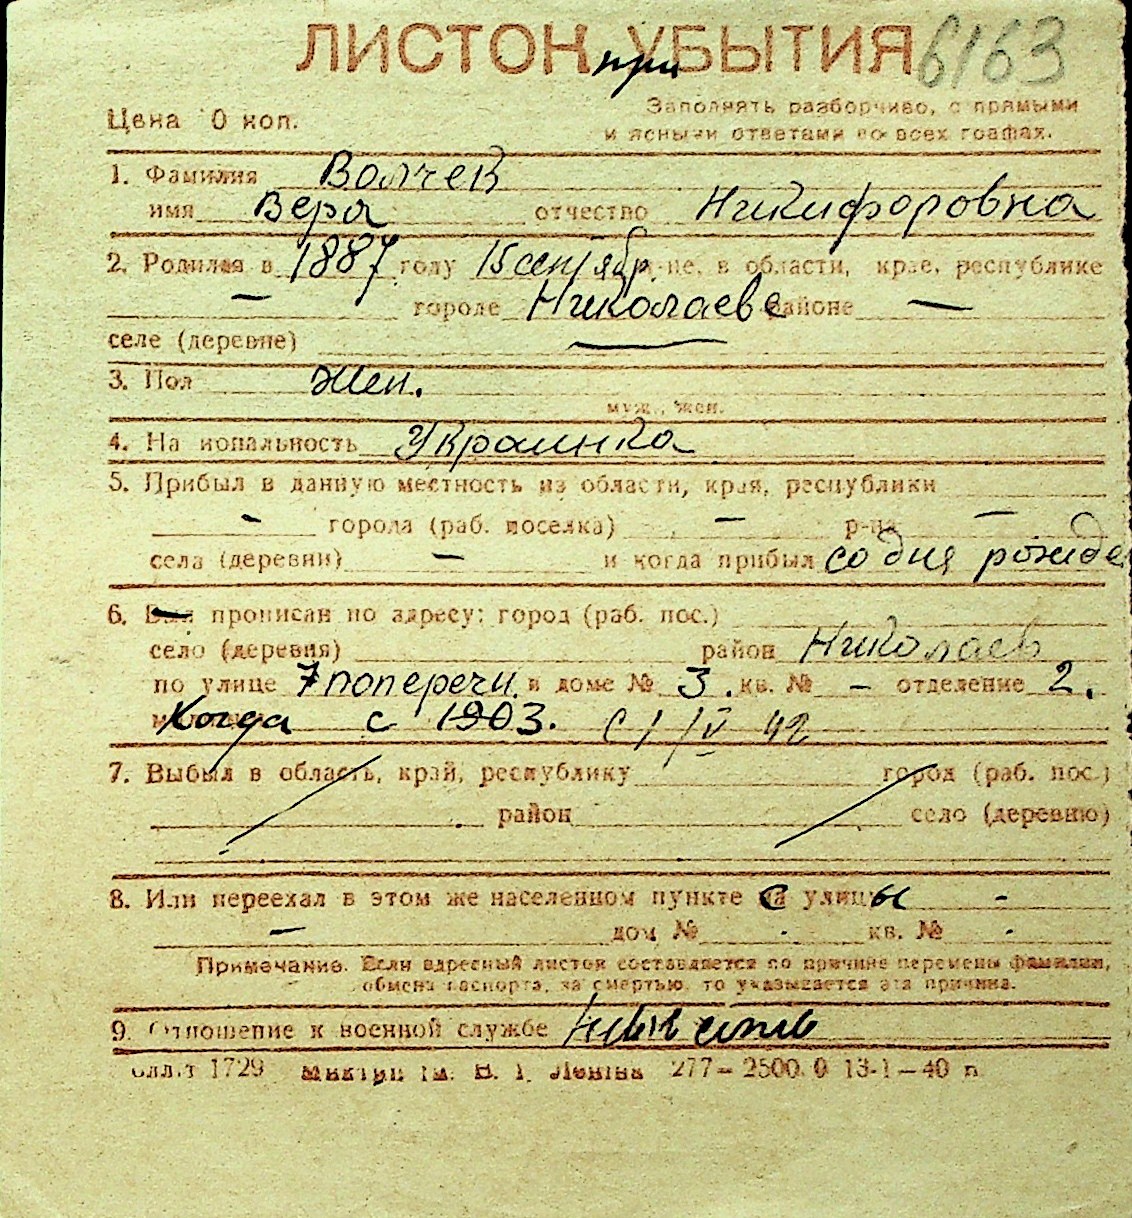 ЛИСТОК при УБЫТИЯ 6163
Цена 10 коп. Заполнять разборчиво, с прямыми
и ясными ответами во всех графах.
1. Фамилия Волчек
имя Вера отчество Никифоровна
2. Родился в 1887 году 15 сентябр. р-не, в области, крае, республике
— городе Николаеве районе —
селе (деревне) —
3. Пол Жен.
муж., жен.
4. Национальность Украинка
5. Прибыл в данную местность из области, края, республики
- города (раб. поселка) — р-на —
села (деревни) — и когда прибыл со дня рожде
6. Был прописан по адресу: город (раб. пос.)
село (деревня) район Николаев
по улице 7 поперечн. в доме № 3. кв. № - отделение 2.
Когда с 1903. с 1/IV 42
7. Выбыл в область, край, республику город (раб. пос.)
район село (деревню)
8. Или переехал в этом же населенном пункте с улицы -
— дом № - кв. № -
Примечание. Если адресный листок составляется по причине перемены фамилии,
обмена паспорта, за смертью, то указывается эта причина.
9. Отношение к военной службе
1729 им. В. І. Леніна 277—2500. 0 13-1—40 п.